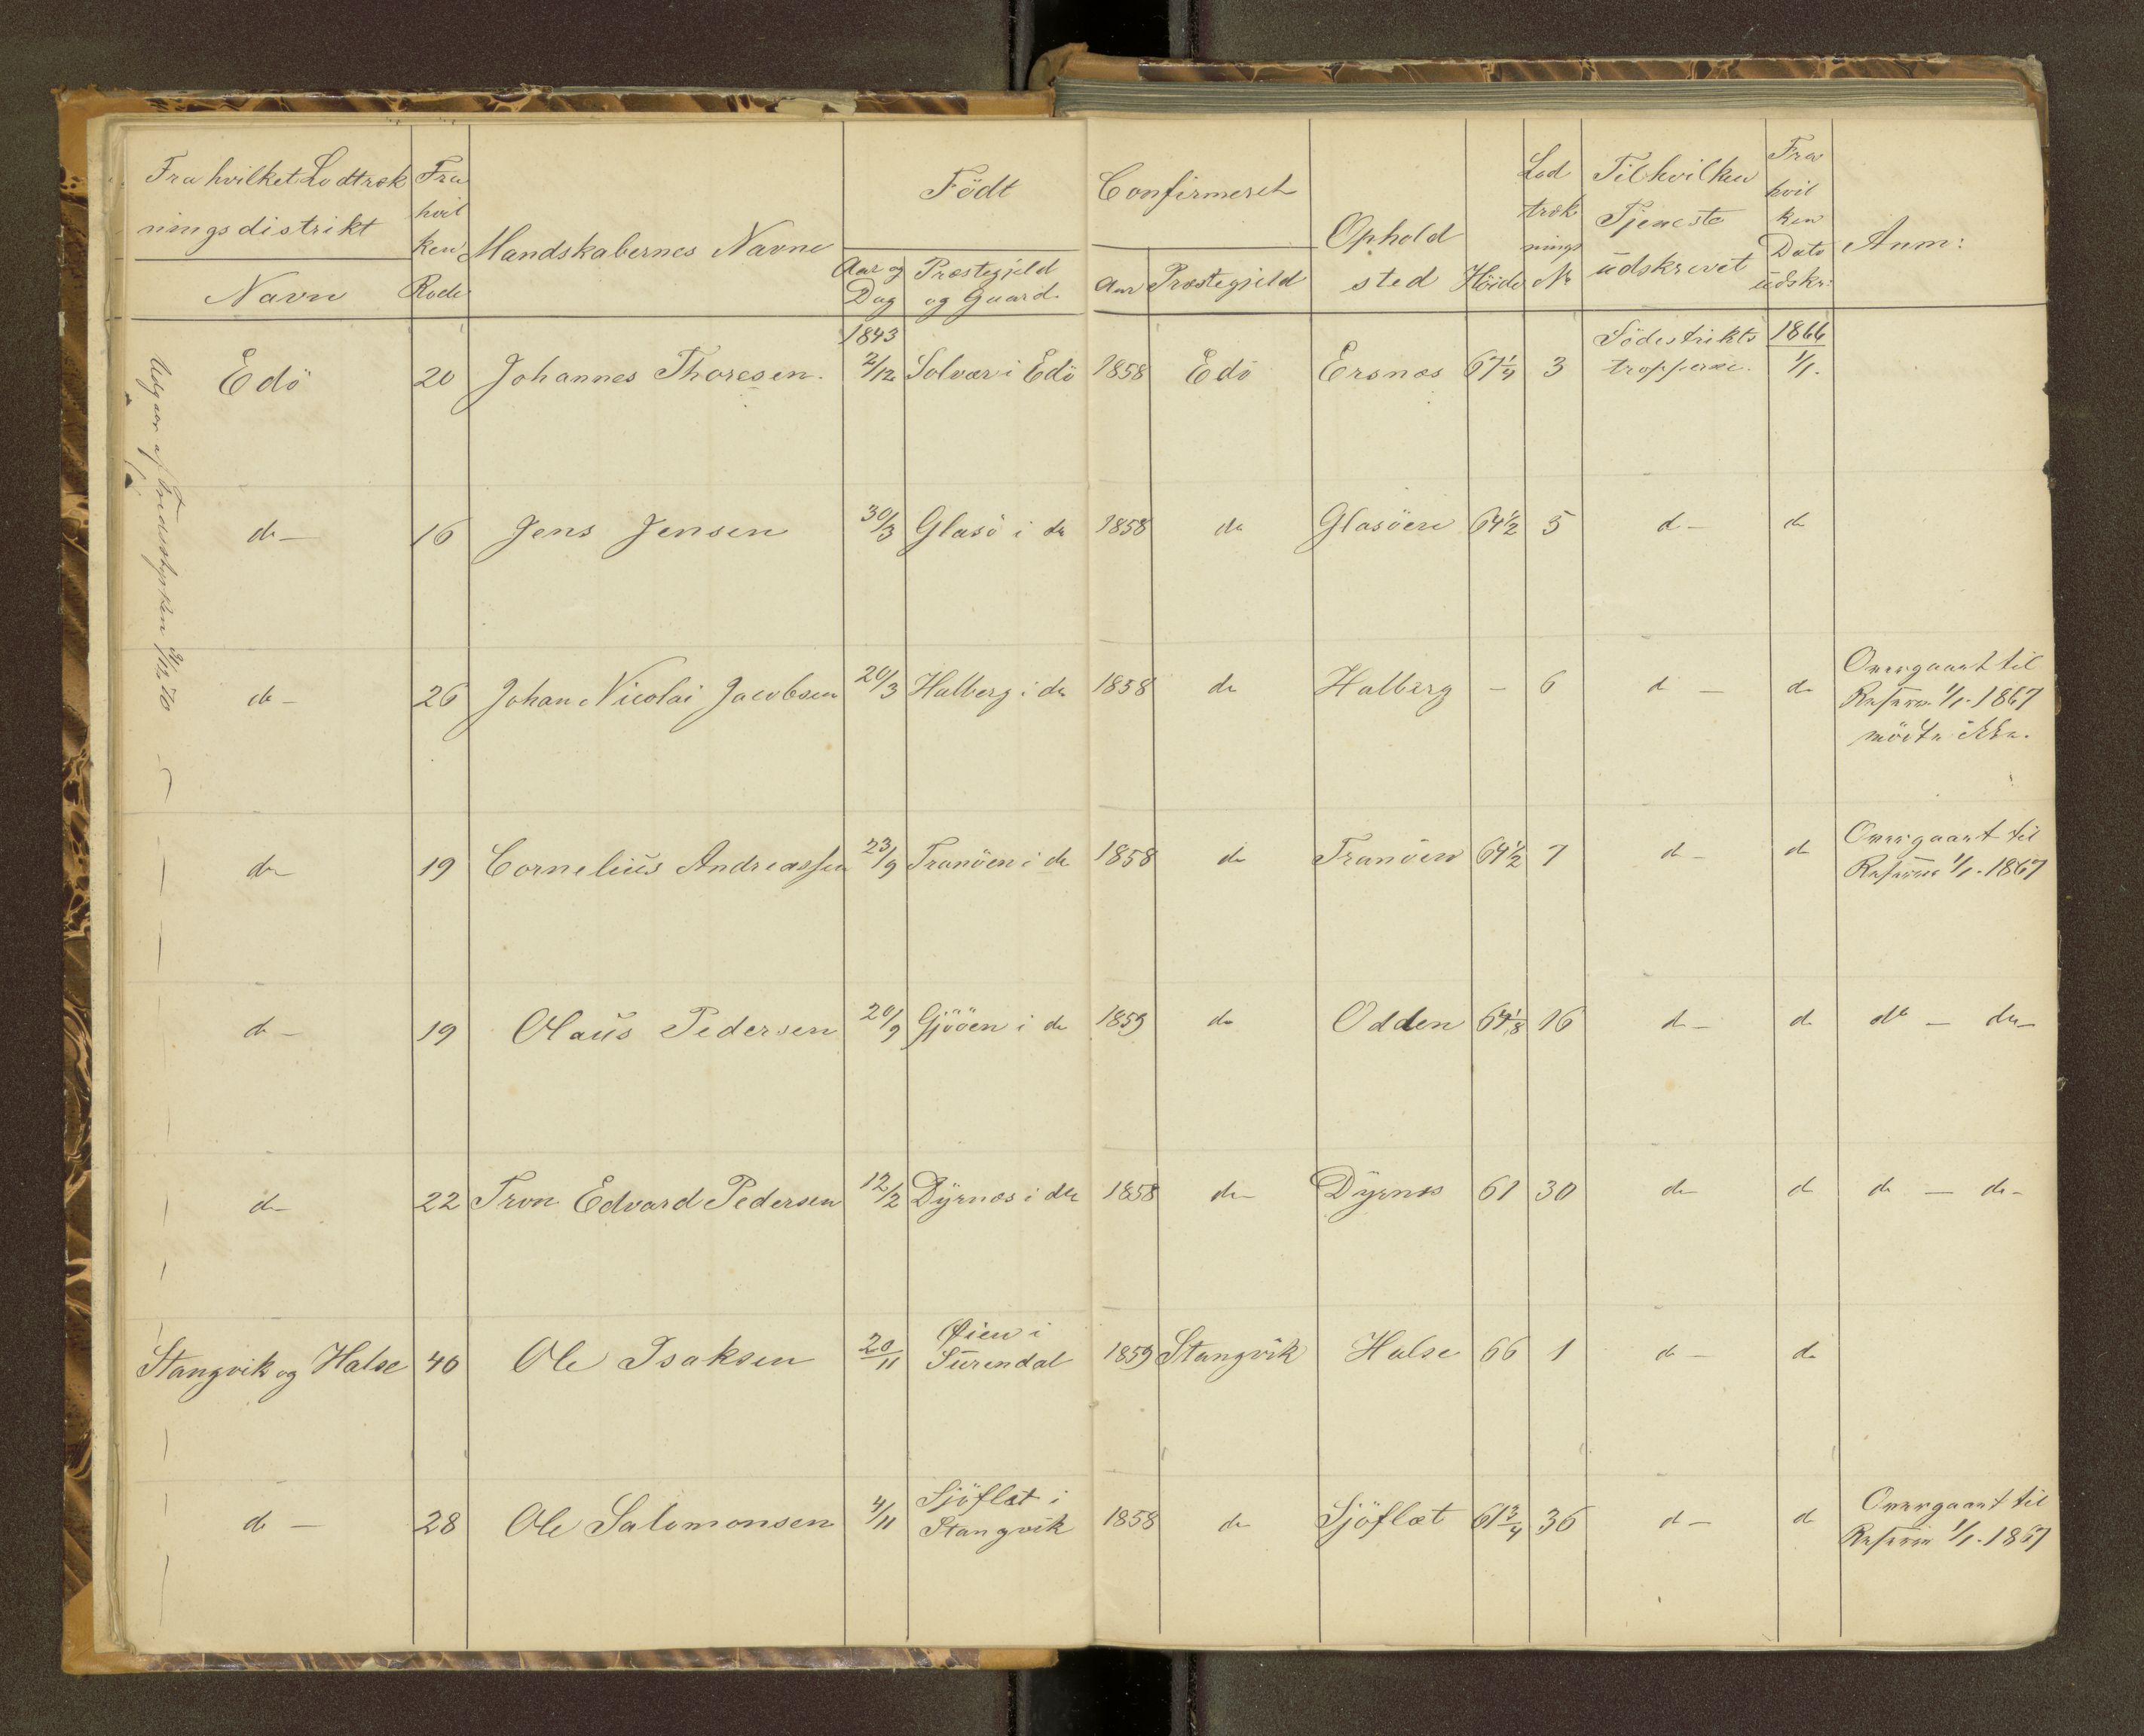 Fra hvilket Lodtræk Fra Födt Confirmeret Lod Til hvilken Fra
ningsdistrikt hvil Ophold træk Tjeneste hvil
ken Mandskabernes Navne sted nings udskrevet ken Anm:
Navn Rode Aar og Præstegjeld Aar Præstegjeld Höide No Dato
Dag og Gaard udskr:
1843 Södestrikts 1866
Edö 20 Johannes Thoresen. 2/12 Solvær i Edö 1858 Edö Ersnæs 67 1/4 3 tropperne. 1/1.
do — 16 Jens Jensen 30/3 Glasö i do 1858 do Glasöen 64 1/2 5 do — do
Overgaaet til
do — 26 Johan Nicolai Jacobsen 20/3 Halberg i do 1858 do Halberg — 6 do — do Reserven 1/1. 1867
mödte ikke.
Overgaaet til
do 19 Cornelius Andreassen 23/9 Tranöen i do 1858 do Tranöen 64 1/2 7 do — do Reserven 1/1. 1867
do — 19 Olaus Pedersen 20/9 Gjööen i do 1859 do Odden 64 1/8 16 do — do do — do —
do — 22 Tron Edvard Pedersen 12/2 Dyrnæs i do 1858 do — Dyrnæs 61 30 do — do do — do —
Øien i
Stangvik og Halse 40 Ole Isaksen 20/11 Surendal 1859 Stangvik Halse 66 1 do — do
Sjöflæt i Overgaaet til
do — 28 Ole Salomonsen 4/11 Stangvik 1858 do Sjöflæt 61 3/4 36 do — do Reserven 1/1. 1867
Udgaar af